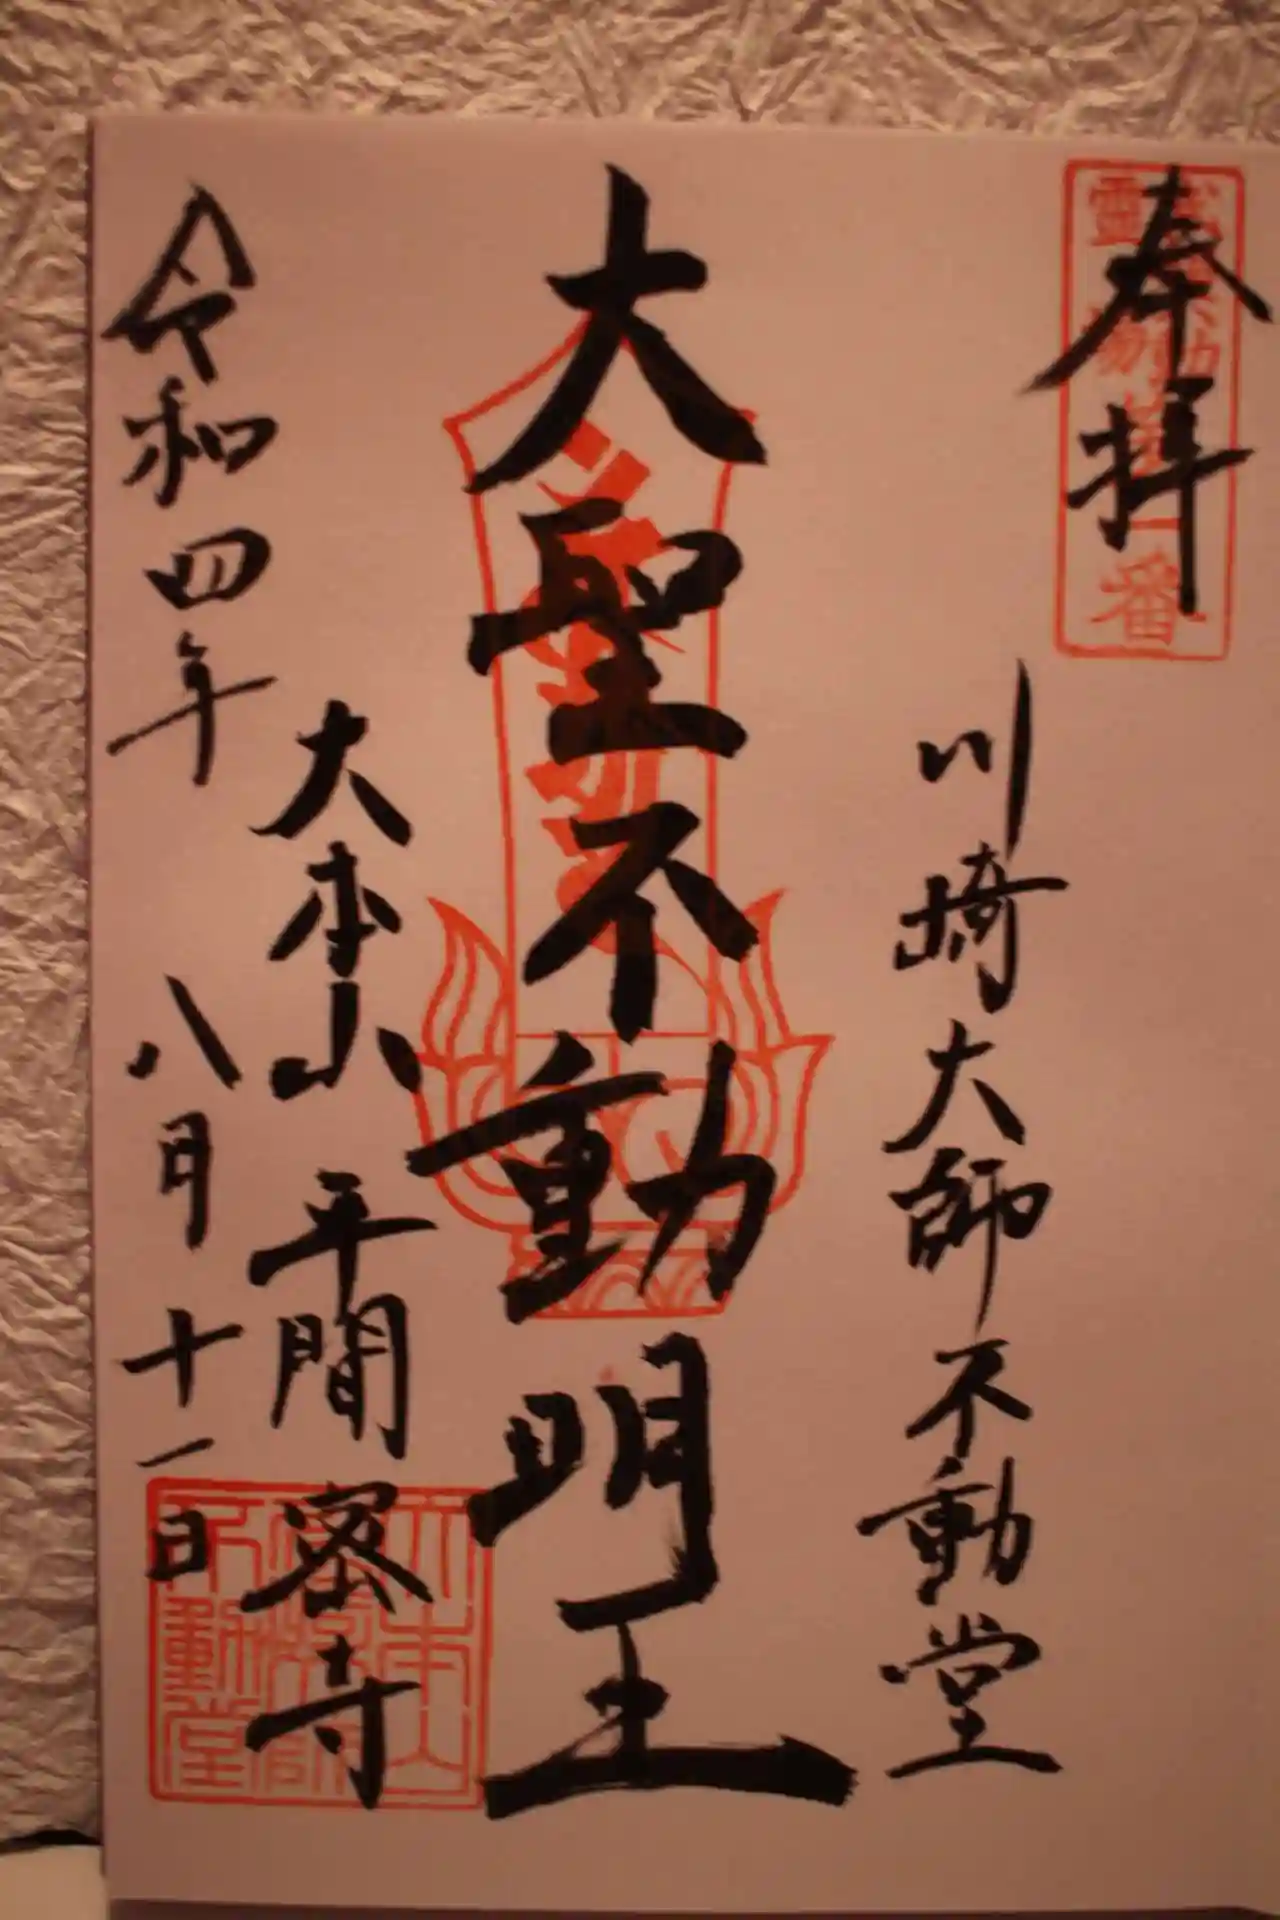 奉拝
川崎大師不動堂
大聖不動明王
大本山 平間密寺
令和四年 八月 十一日
大本山
不動堂